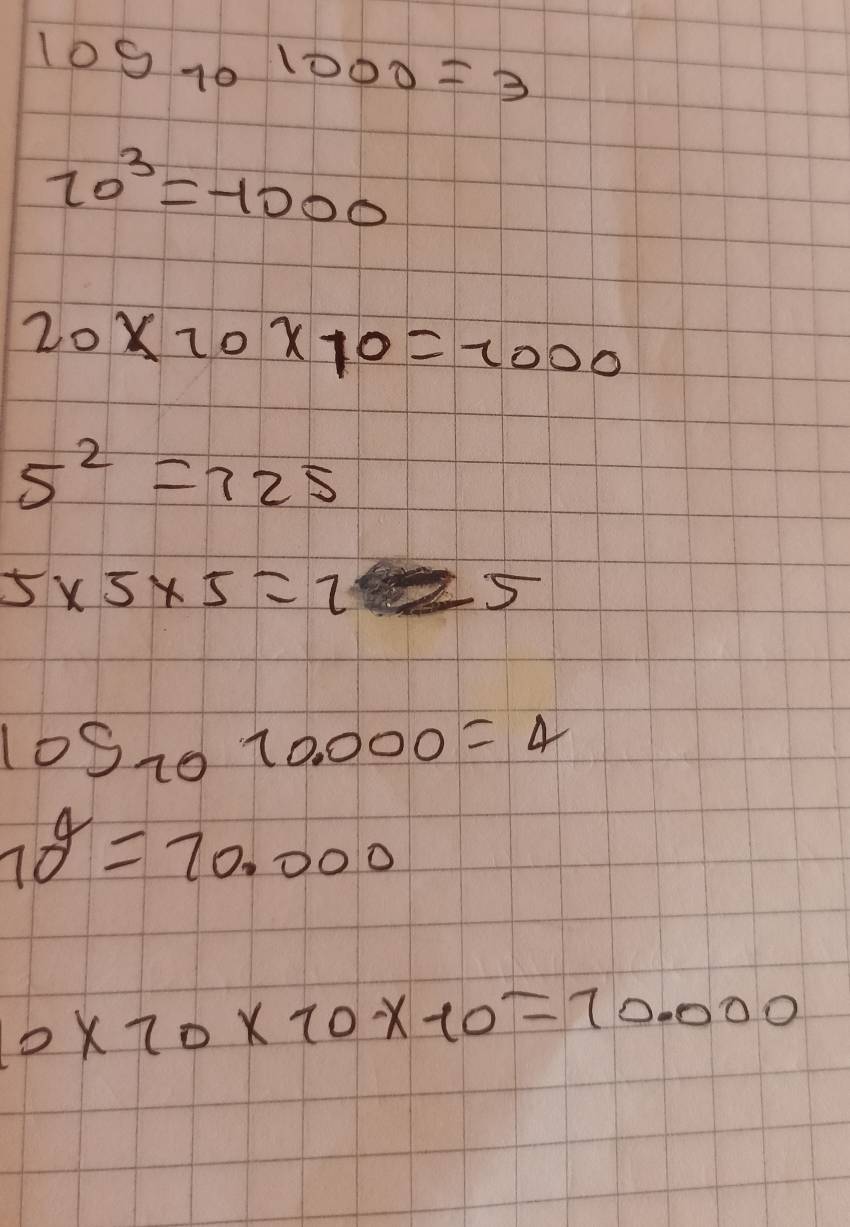 log₁₀ 1000 = 3
10³ = 1000
20 x 10 x 10 = 1000
5² = 125
5 x 5 x 5 = 1 2 5
log₁₀ 10.000 = 4
10⁴ = 10.000
10 x 10 x 10 x 10 = 10.000